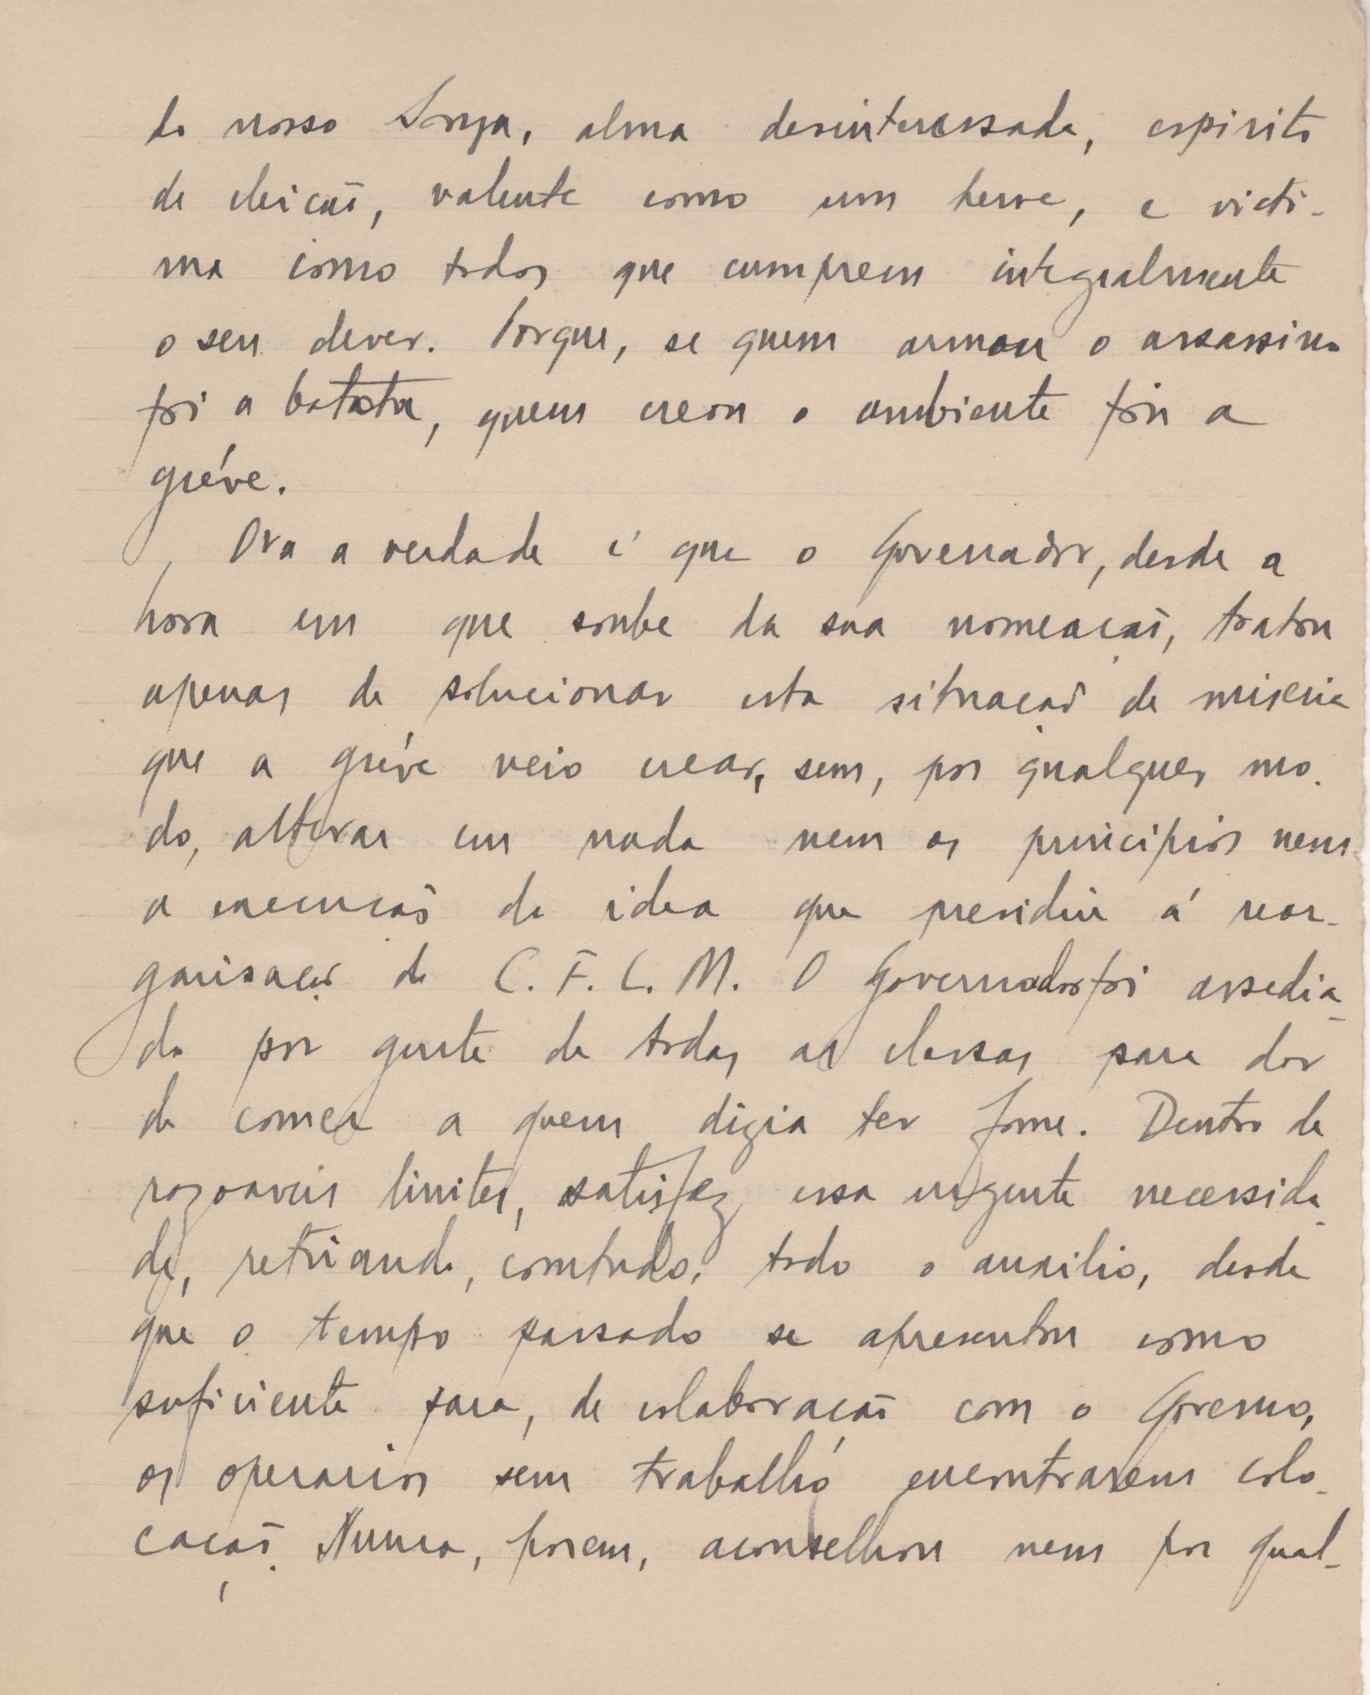 do nosso Souza, alma desinteressada, espirito
de eleição, valente como um heroe, e victi-
ma como todos que cumprem integralmente
o seu dever. Porque, se quem armou o assassino
foi a batota, quem creou o ambiente foi a
gréve.
Ora a verdade é que o Governador, desde a
hora em que soube da sua nomeação, tratou
apenas de solucionar esta situação de miseria
que a gréve veio crear, sem, por qualquer mo-
do, alterar em nada nem os principios nem
a execução da idea que presidiu á reor-
ganisação do C. F. L. M. O Governador foi assedia-
do por gente de todas as classes para dar
de comer a quem dizia ter fome. Dentro de
razoaveis limites, satisfez essa urgente necessida-
de, retirando, comtudo, todo o auxilio, desde
que o tempo passado se apresentou como
suficiente para, de colaboração com o Governo,
os operarios sem trabalho encontrarem colo-
cação. Nunca, porem, aconselhou nem por qual-